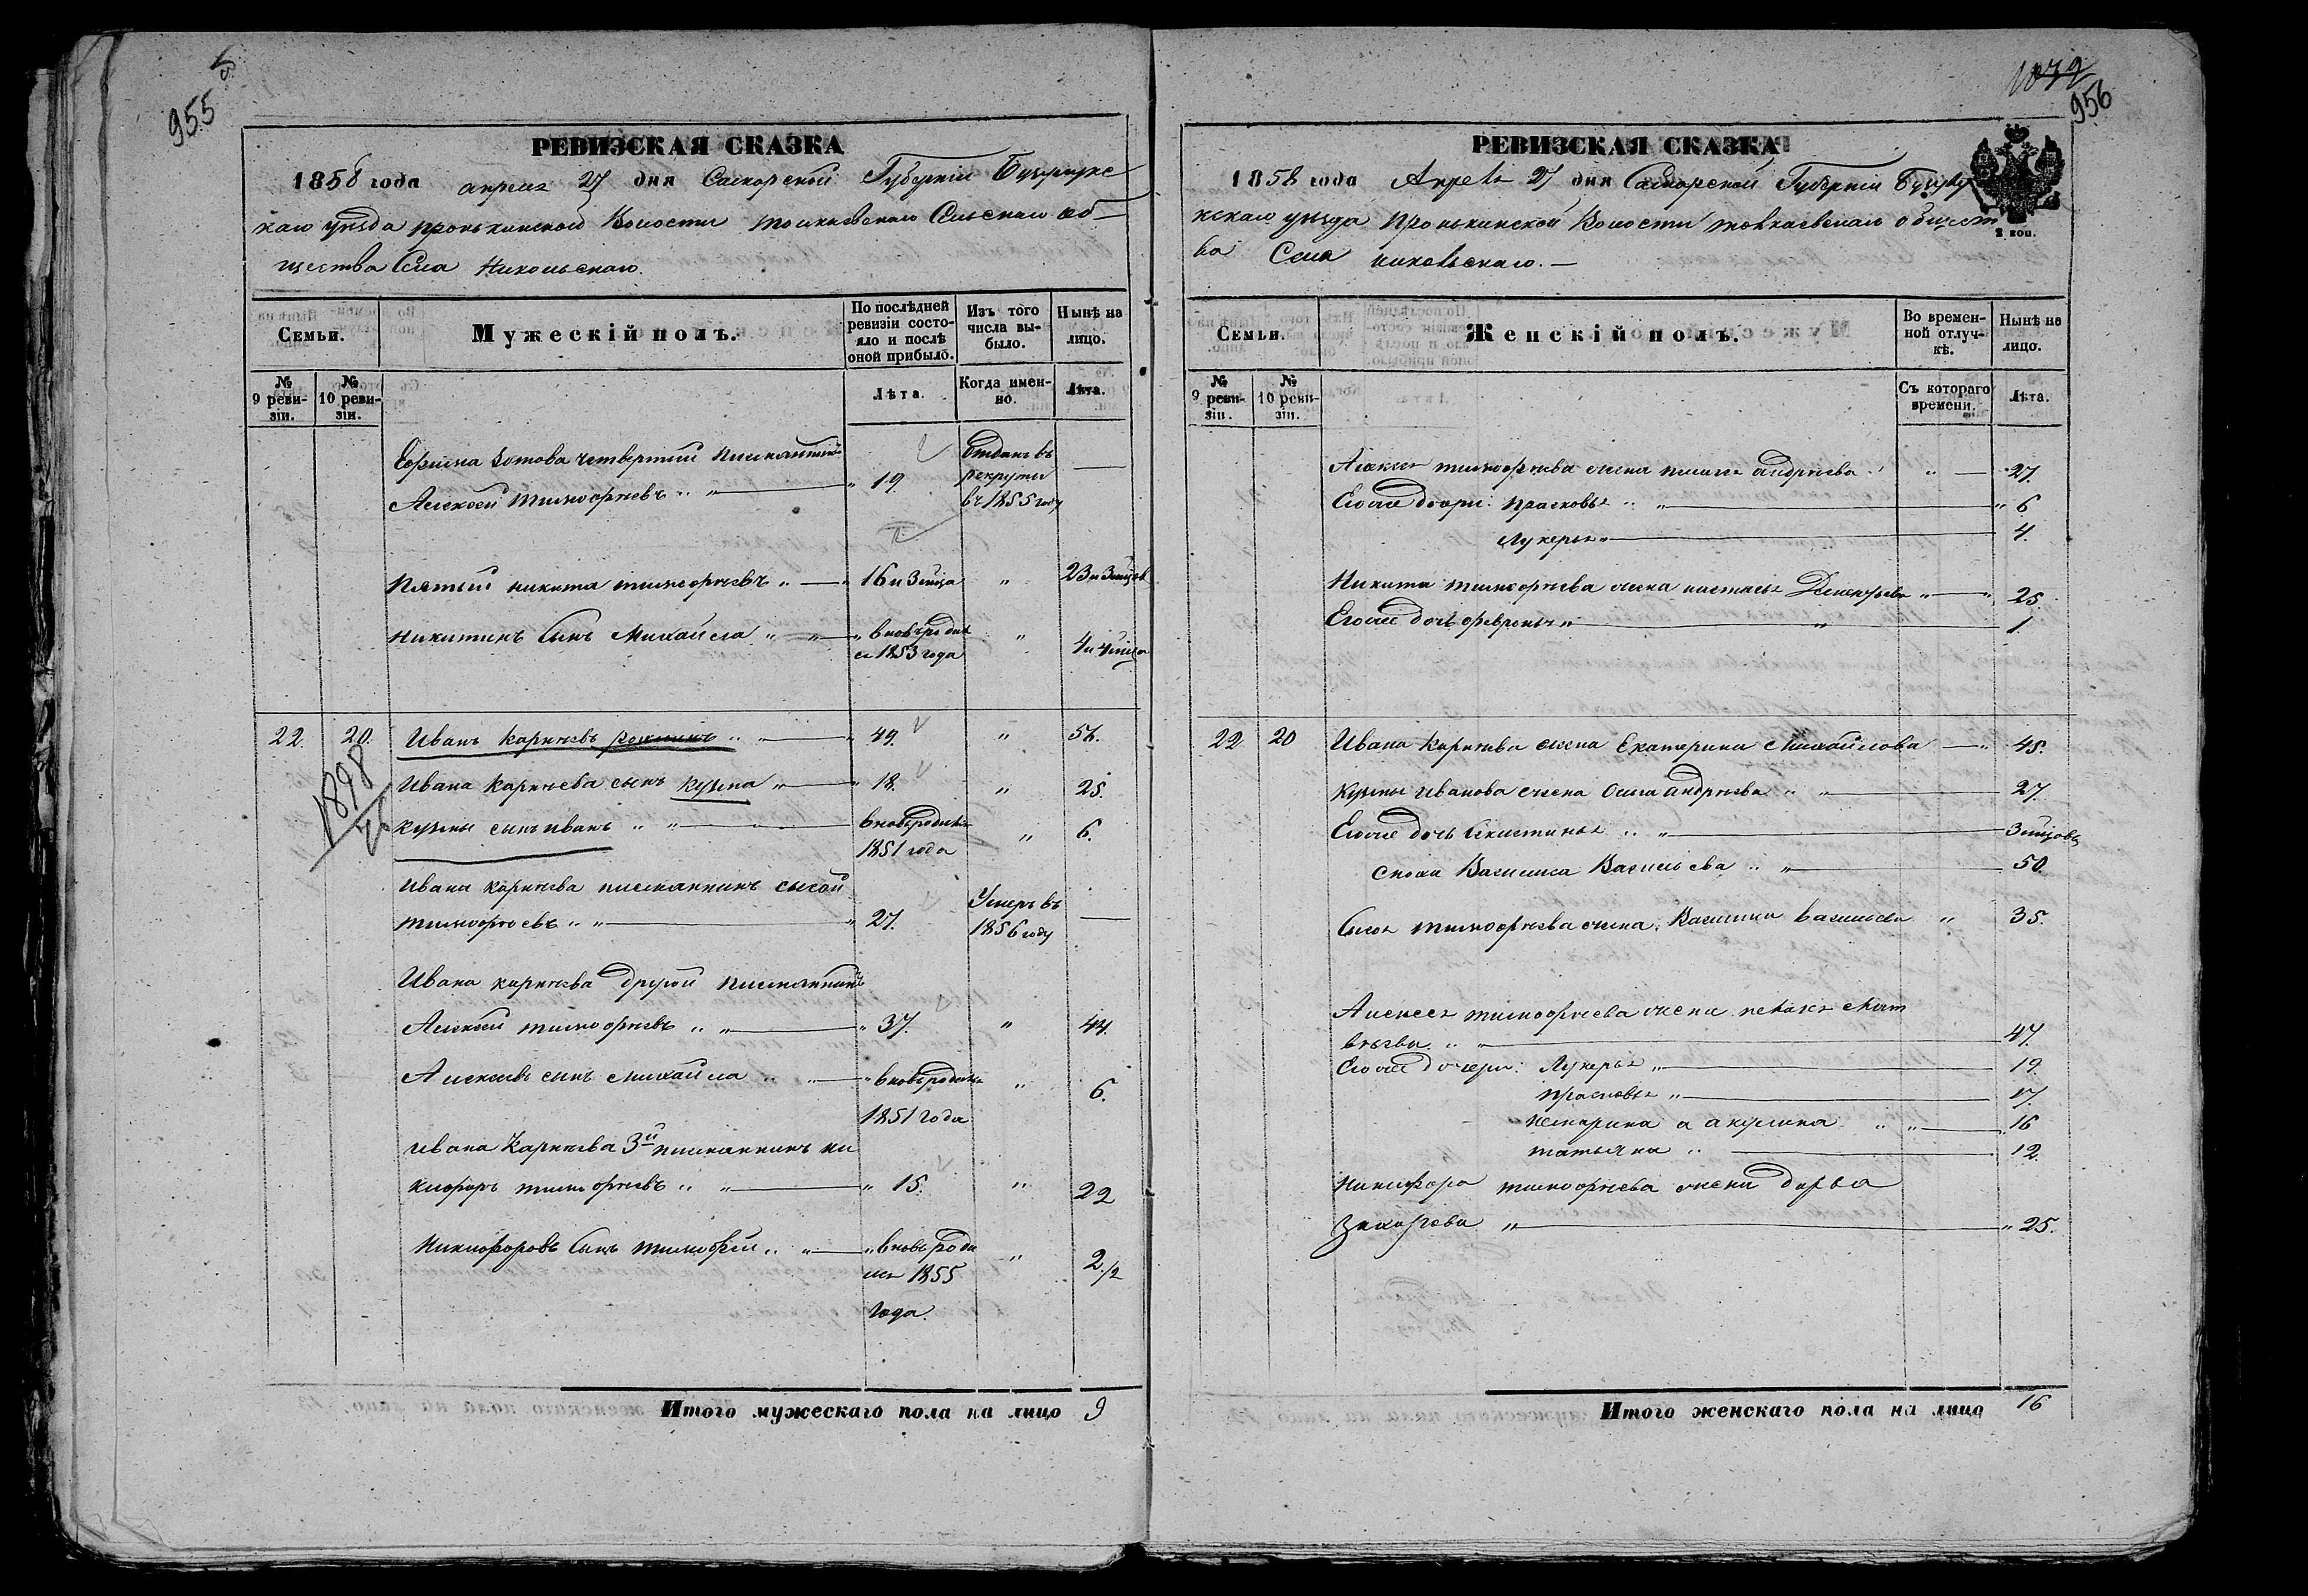 955
РЕВИЗСКАЯ СКАЗКА
1858 года апреля 27 дня Самарской Губерніи Бузулукс
каго уезда пронькинской Волости толкаевскаго Сельскаго об-
щества Села Никольскаго.
Семьи.
Мужескій полъ.
По послѣдней ревизіи состояло и послѣ оной прибыло.
Изъ того числа выбыло.
Нынѣ на лицо.
№ 9 ревизіи.
№ 10 ревизіи.
Лѣта.
Когда именно.
Лѣта.
четвертый племянникъ
Алексей тимофеевъ 19. Отданъ въ рекруты въ 1855 году
Пятый никита тимофеевъ 16 и 3 мйца 23 и 3 мйцов
никитинъ Сынъ Михайла вновьродил ся 1853 года 4 и 4 мйца
22. 20. Иванъ Карнеевъ 49. 56.
1898
Ивана Карнеева сынъ кузма 18. 25.
кузмы сынъ иванъ вновьродился 1851 года 6.
Ивана карнеева племянникъ сысой
тимофеевъ 27. Умеръ въ 1856 году
Ивана карнеева другой племянникъ
Алексей тимофеевъ 37. 44.
Алексеевъ сынъ михайла вновьродился 1851 года 6.
ивана Карнеева 3й племянникъ ни
кифоръ тимофеевъ 15. 22
Никифоровъ Сынъ тимофей вновьроди лся 1855 года. 2 1/2
Итого мужескаго пола на лицо 9
1079
956
РЕВИЗСКАЯ СКАЗКА
1858 года Апреля 27 дня Самарской Губерніи Бузулу
кскаго уезда Пронькинской Волости толкаевскаго общест
ва Села никольскаго.
2 коп.
Семьи.
Женскій полъ.
Во временной отлучкѣ.
Нынѣ на лицо.
№ 9 ревизіи.
№ 10 ревизіи.
Съ котораго времени.
Лѣта.
Алексея тимофеева жена андреева 27.
Егоже дочери: прасковья 6.
лукерья 4.
Никиты тимофеева жена настасья 25.
Егоже дочь февронья 1.
22 20 Ивана Карнеева жена Екатерина Михайлова 45.
кузмы Иванова жена андреева 27.
Егоже дочь 3 мйцовъ
Василиса Васильева 50.
Сысоя тимофеева жена Василиса васильева 35.
Алексея тимофеева жена пелагея мат
веева 47.
Егоже дочери: Лукерья 19.
прасковья 17.
акулина 16
татьяна 12.
никифора тимофеева жена дарья
Захарова 25.
Итого женскаго пола на лицо 16